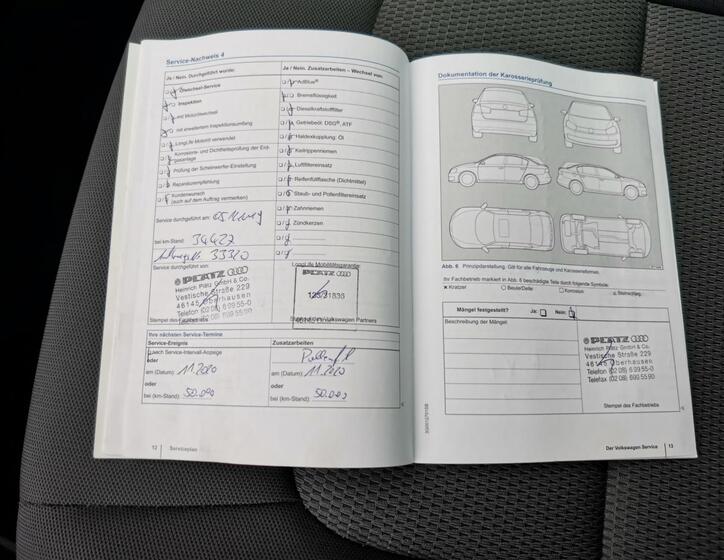 Service-Nachweis 4
Ja / Nein. Durchgeführt wurde:
Ölwechsel-Service
Inspektion
mit Motorölwechsel
mit erweitertem Inspektionsumfang
LongLife Motoröl verwendet
Korrosions- und Dichtheitsprüfung der Erd-
gasanlage
Prüfung der Scheinwerfer-Einstellung
Reparaturempfehlung
Kundenwunsch
(auch auf dem Auftrag vermerken)
Service durchgeführt am:
bei km-Stand: 34422
33320
Service durchgeführt von:
PLATZ
Heinrich Platz GmbH & Co.
Vestische Straße 229
46145 Oberhausen
Telefon (02 08) 6 99 55-0
Stempel des Fachbetriebs
Ja / Nein. Zusatzarbeiten – Wechsel von:
AdBlue®
Bremsflüssigkeit
Dieselkraftstofffilter
Getriebeöl: DSG®, ATF
Haldexkupplung: Öl
Keilrippenriemen
Luftfiltereinsatz
Reifenfüllflasche (Dichtmittel)
Staub- und Pollenfiltereinsatz
Zahnriemen
Zündkerzen
LongLife Mobilitätsgarantie
PLATZ
Volkswagen Partners
Ihre nächsten Service-Termine
Service-Ereignis
nach Service-Intervall-Anzeige
oder
am (Datum): 11.2020
oder
bei (km-Stand): 50.000
Zusatzarbeiten
am (Datum): 11.2020
oder
bei (km-Stand): 50.000
12 Serviceplan
Dokumentation der Karosserieprüfung
Abb. 6 Prinzipdarstellung. Gilt für alle Fahrzeuge und Karosserieformen.
Ihr Fachbetrieb markiert in Abb. 6 beschädigte Teile durch folgende Symbole:
x Kratzer ○ Beule/Delle □ Korrosion △ Steinschlag
Mängel festgestellt? Ja: Nein:
Beschreibung der Mängel:
PLATZ
Heinrich Platz GmbH & Co.
Vestische Straße 229
46145 Oberhausen
Telefon (02 08) 6 99 55-0
Telefax (02 08) 699 55 90
Stempel des Fachbetriebs
Der Volkswagen Service 13